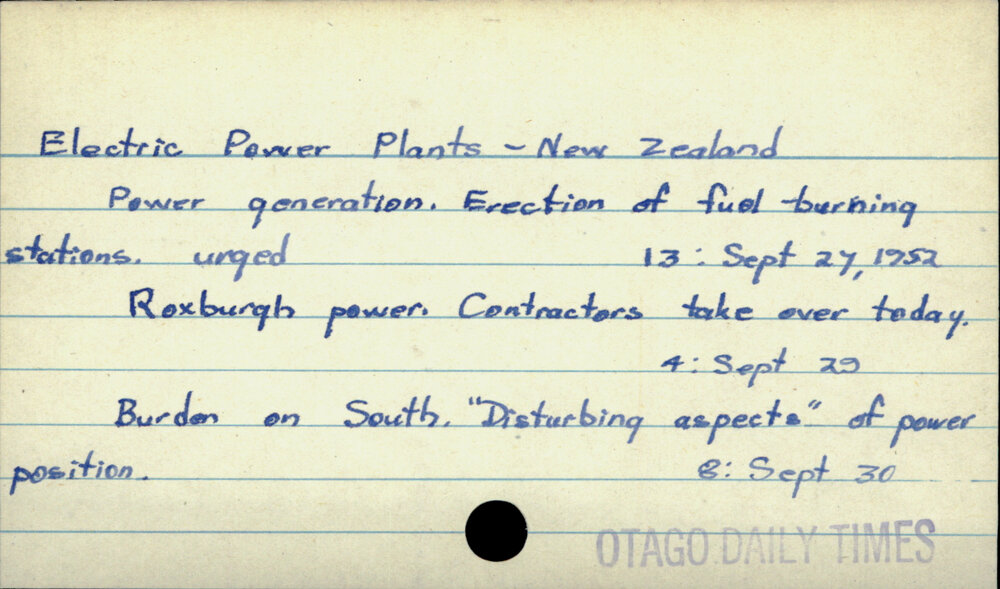 Electric Power Plants - New Zealand
Power generation. Erection of fuel-burning
stations. urged 13: Sept 27, 1952
Roxburgh power. Contractors take over today.
4: Sept 29
Burden on South. "Disturbing aspects" of power
position. 8: Sept 30
OTAGO DAILY TIMES